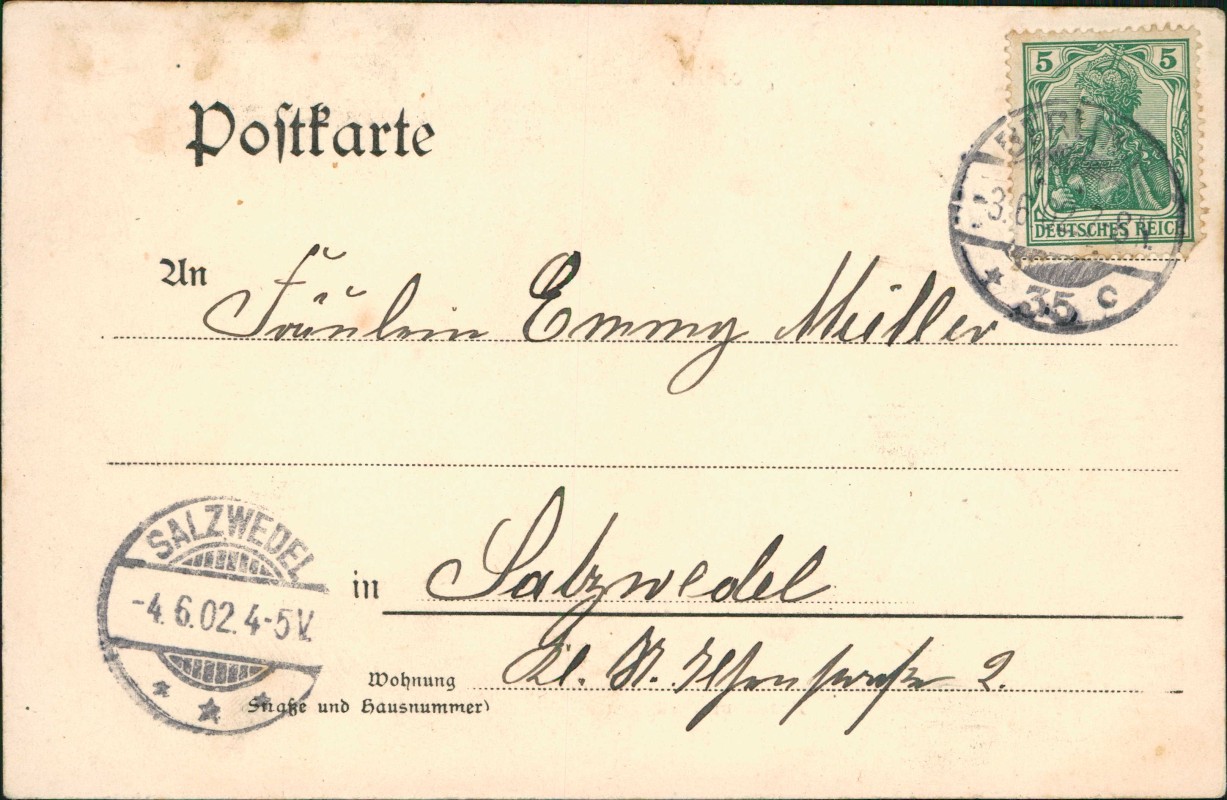 Postkarte
5 5
DEUTSCHES REICH
BERL
3.6.02. 8N.
* 35 c
An Fräulein Emmy Müller
SALZWEDEL
-4.6.02.4-5V.
in Salzwedel
Wohnung
(Straße und Hausnummer)
Kl. St. 2.